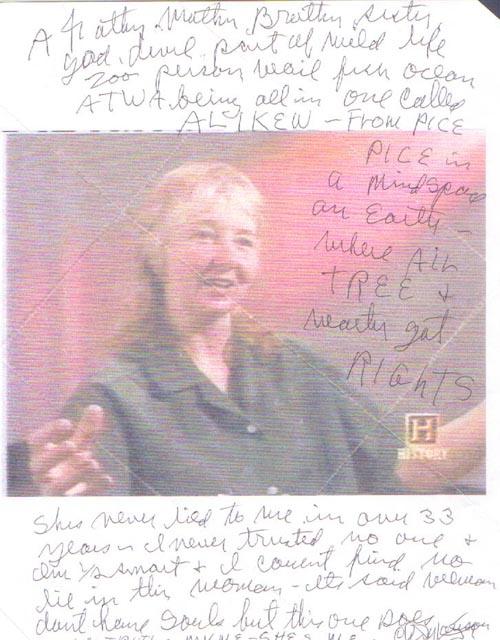 A Father, Mother, Brother, sister,
god, devil, part of wild life
zoo person fish ocean
ATWA, being all in one called
ALIKEW - From PICE
PICE in
a MindSpace
an Earth -
where Air
TREE +
get
RIGHTS
H
HISTORY
She's never lied to me in over 33
years - I never trusted no one +
I'm ½ smart + I can't find no
lie in this woman - its said women
don't have souls but this one Does